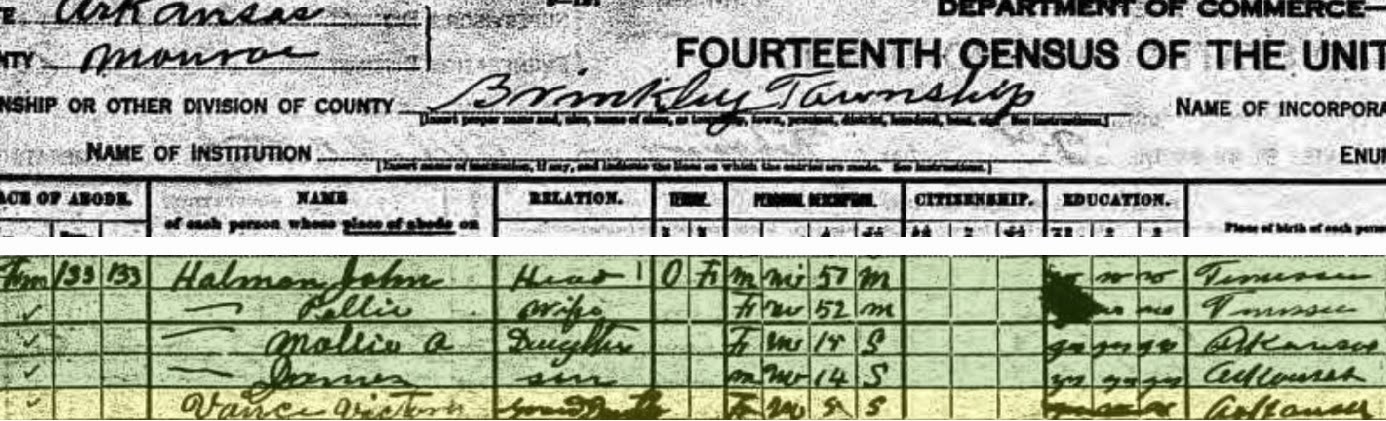 TE Arkansas
DEPARTMENT OF COMMERCE—
NTY Monroe
FOURTEENTH CENSUS OF THE UNIT
NSHIP OR OTHER DIVISION OF COUNTY Brinkley Township
NAME OF INCORPORA
[Insert proper name and, also, name of class, as township, town, precinct, district, hundred, beat, etc. See instructions.]
NAME OF INSTITUTION
[Insert name of institution, if any, and indicate the lines on which the entries are made. See instructions.]
ENU
ACE OF ABODE. NAME RELATION. PERSONAL DESCRIPTION. CITIZENSHIP. EDUCATION.
of each person whose place of abode on
Place of birth of each perso
Fm 133 133 Halman John Head 1 O F M 57 M no no Tennessee
Wife F 52 M no no Tennessee
Mollie A Daughter F S yes yes Arkansas
James son M 14 S yes yes Arkansas
Vance F S Arkansas